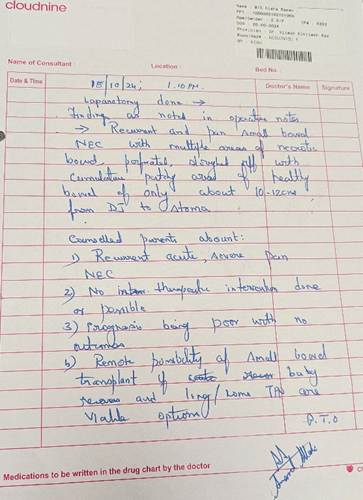 cloudnine
Name of Consultant :
Location :
Bed No
Date & Time
Doctor's Name
Signature
15/10/24; 1.10 PM.
Laparotomy done →
Finding as noted in operative notes
→ Recurrent and pan small bowel
NEC with multiple areas of necrotic
bowel, perforated, sloughed off with
cumulative patchy areas of healthy
bowel of only about 10-12cms
from DJ to Stoma
Counselled parents about:
1) Recurrent acute, severe pan
NEC
2) No therapeutic intervention done
or possible
3) Prognosis being poor with no
outcomes
4) Remote possibility of small bowel
transplant if baby
recovers and long/home TPN are
Viable options
P.T.O
Medications to be written in the drug chart by the doctor